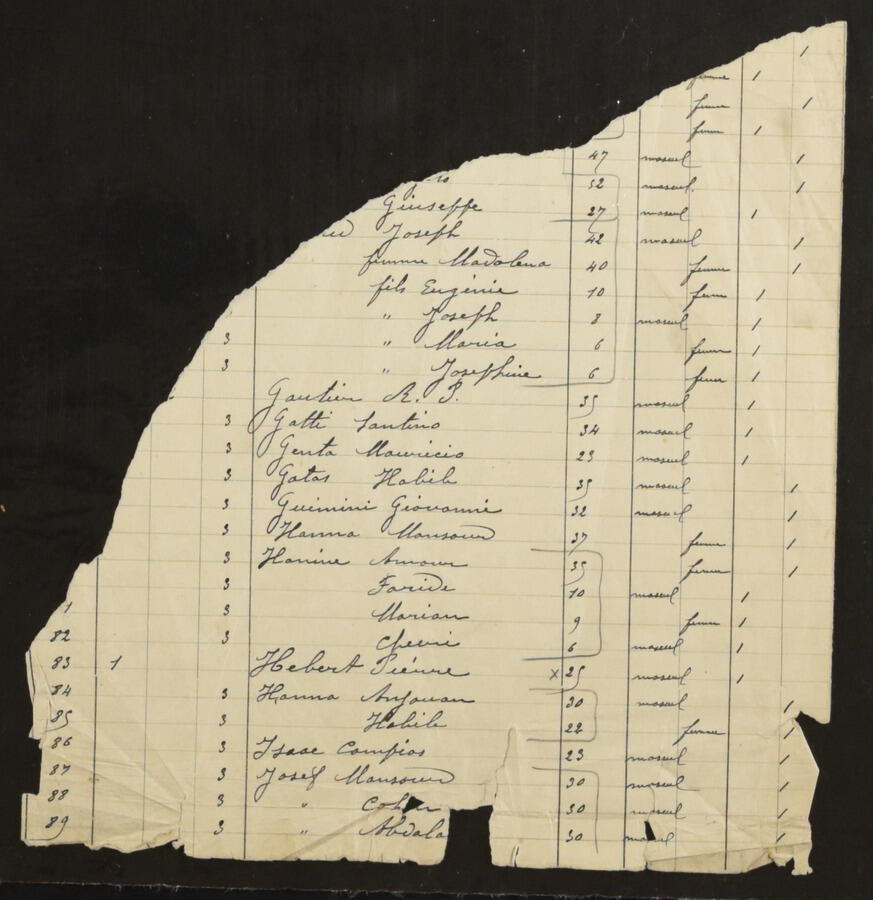 1
femme 1
femm 1
femm 1
47 mascul 1
52 mascul. 1
Giuseppe 27 mascul 1
Joseph 42 mascul 1
femme Madalena 40 femm 1
fils Eugénie 10 femm 1
" Joseph 8 mascul 1
3 " Maria 6 femm 1
3 " Josephine 6 femm 1
Gautier R. P. 35 mascul 1
3 Gatti Santino 34 mascul 1
3 Genta Mauricio 23 mascul 1
3 Gatas Habib 35 mascul 1
3 Guimini Giovanni 32 mascul 1
3 Hanna Mansour 37 femm 1
3 Hanine Amour 35 femm 1
3 Faride 10 mascul 1
1 3 Marian 9 femm 1
82 3 6 mascul 1
83 1 Hebert Piérre x 25 mascul 1
84 3 Hanna Anjouan 30 mascul 1
85 3 Habib 22 femme 1
86 3 Isaac Campios 23 mascul 1
87 3 Josef Mansour 30 mascul 1
88 3 " 30 mascul 1
89 3 " Abdala 30 mascul 1